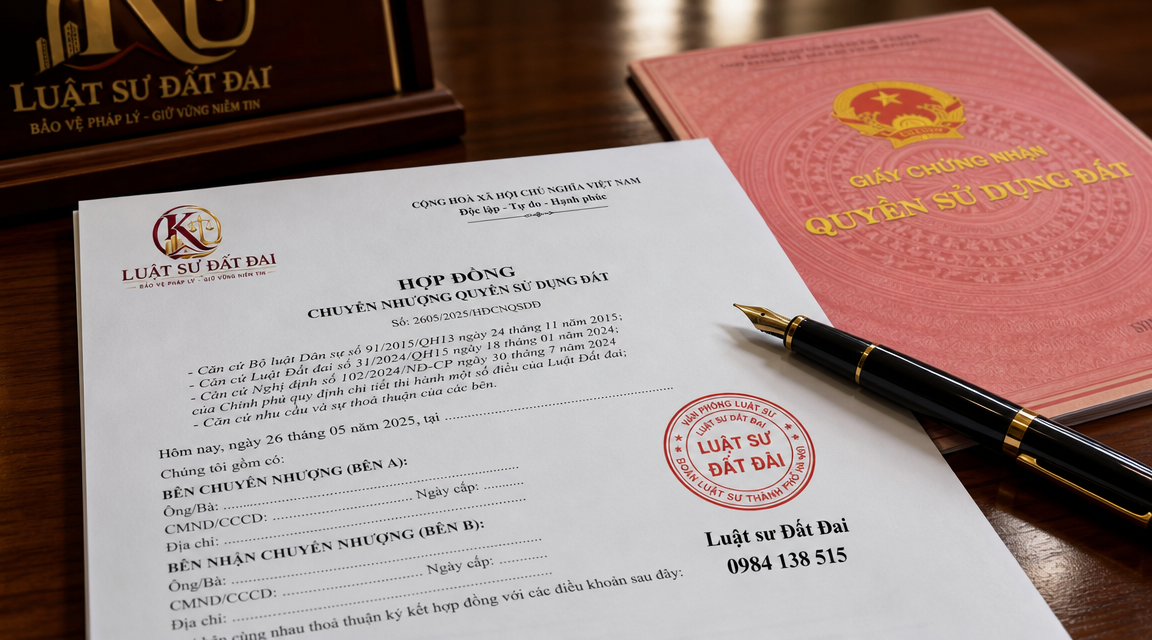 LUẬT SƯ ĐẤT ĐAI
BẢO VỆ PHÁP LÝ - GIỮ VỮNG NIỀM TIN
GIẤY CHỨNG NHẬN
QUYỀN SỬ DỤNG ĐẤT
K
LUẬT SƯ ĐẤT ĐAI
BẢO VỆ PHÁP LÝ - GIỮ VỮNG NIỀM TIN
CỘNG HOÀ XÃ HỘI CHỦ NGHĨA VIỆT NAM
Độc lập - Tự do - Hạnh phúc
HỢP ĐỒNG
CHUYỂN NHƯỢNG QUYỀN SỬ DỤNG ĐẤT
Số: 2605/2025/HĐCNQSDĐ
- Căn cứ Bộ luật Dân sự số 91/2015/QH13 ngày 24 tháng 11 năm 2015;
- Căn cứ Luật Đất đai số 31/2024/QH15 ngày 18 tháng 01 năm 2024;
- Căn cứ Nghị định số 102/2024/NĐ-CP ngày 30 tháng 7 năm 2024
của Chính phủ quy định chi tiết thi hành một số điều của Luật Đất đai;
- Căn cứ nhu cầu và sự thoả thuận của các bên.
Hôm nay, ngày 26 tháng 05 năm 2025, tại ..........
Chúng tôi gồm có:
BÊN CHUYỂN NHƯỢNG (BÊN A):
Ông/Bà: ..........
CMND/CCCD: .......... Ngày cấp: ..........
Địa chỉ: ..........
BÊN NHẬN CHUYỂN NHƯỢNG (BÊN B):
Ông/Bà: ..........
CMND/CCCD: .......... Ngày cấp: ..........
Địa chỉ: ..........
bên cùng nhau thoả thuận ký kết hợp đồng với các điều khoản sau đây:
VĂN PHÒNG LUẬT SƯ
LUẬT SƯ ĐẤT ĐAI
LUẬT SƯ
ĐẤT ĐAI
ĐOÀN LUẬT SƯ THÀNH PHỐ HÀ NỘI
Luật sư Đất Đai
0984 138 515